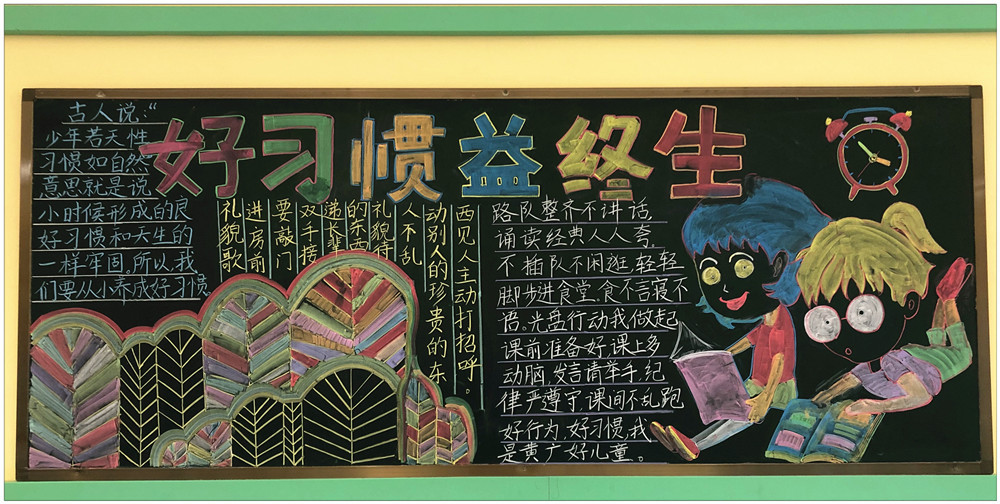 好习惯益终生
古人说:“
少年若天性
习惯如自然
意思就是说
小时候形成的良
好习惯和天生的
一样牢固。所以,我
们要从小养成好习惯
礼貌歌
进房前
要敲门
双手接
递长辈
的东西
礼貌待
人不乱
动别人的珍贵的东
西见人主动打招呼。
路队整齐不讲话,
诵读经典人人夸,
不插队不闲逛,轻轻
脚步进食堂,食不言寝不
语。光盘行动我做起
课前准备好,课上多
动脑,发言请举手,纪
律严遵守,课间不乱跑
好行为,好习惯,我
是黄广好儿童。